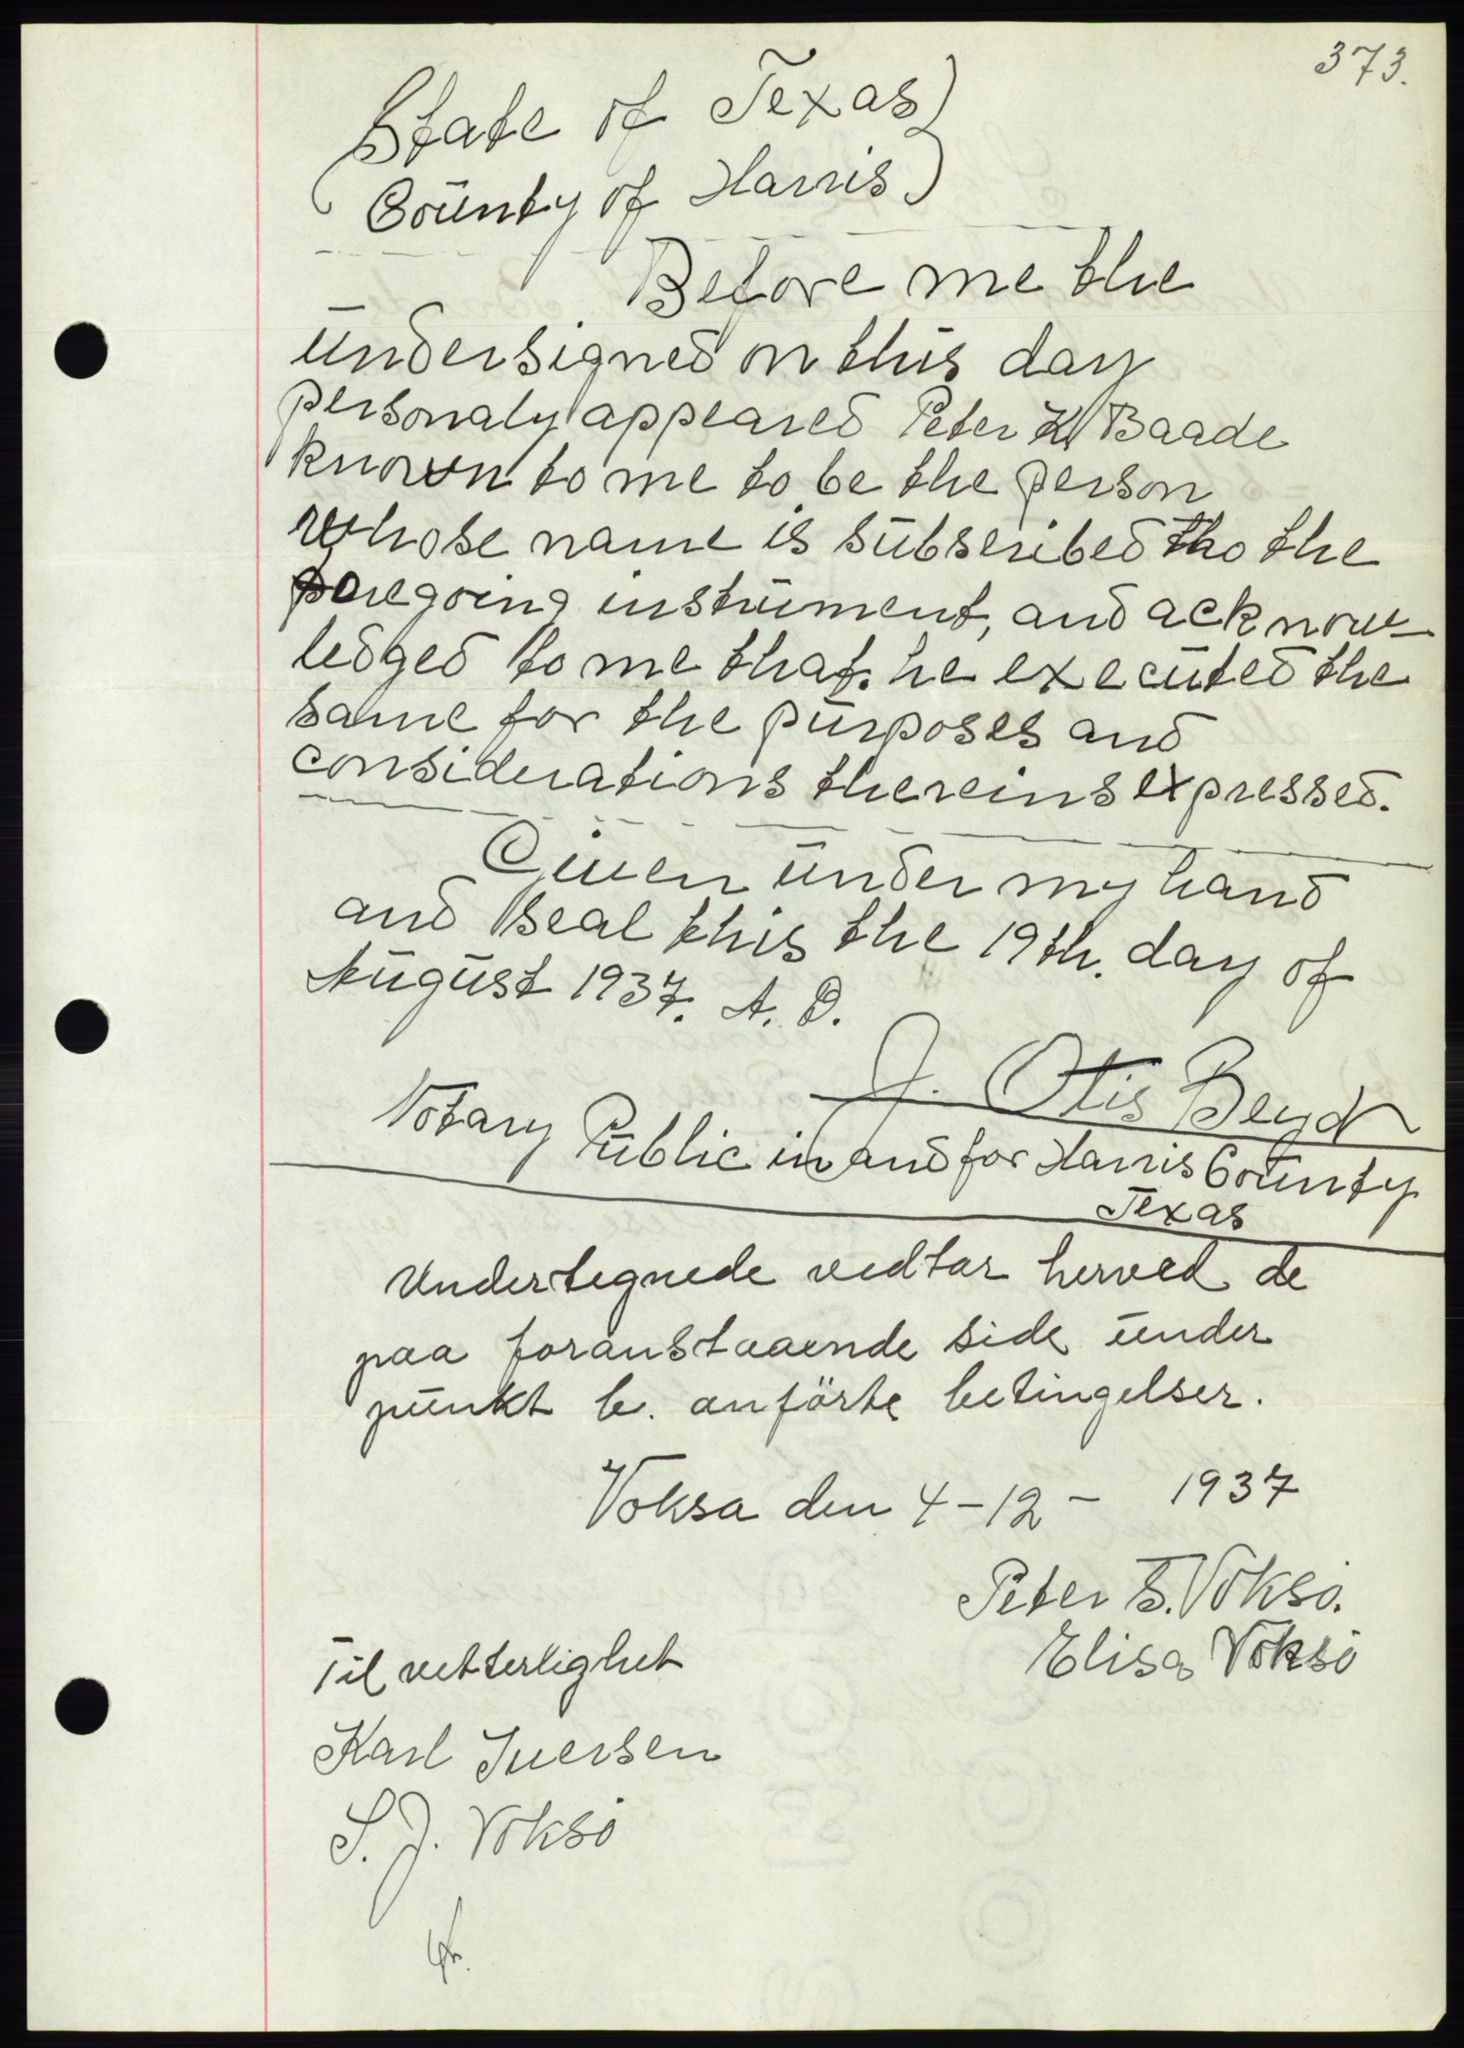 373.
State of Texas
County of Harris
Before me the
undersigned on this day
personaly appeared Peter K. Baade
known to me to be the person
whose name is subscribed tho the
foregoing instrument, and acknow-
ledged to me that he executed the
same for the purposes and
considerations thereins expressed.
Given under my hand
and seal this the 19th. day of
August 1937. A. D.
J. Otis Beyd
Notary Public in and for Harris County
Texas
Undertegnede vedtar herved de
paa foranstaaende side under
punkt b. anförte betingelser.
Voksa den 4-12- 1937
Peter S. Voksö.
Elisa Voksö
Til vetterlighet
Karl Iversen
S. J. Voksö